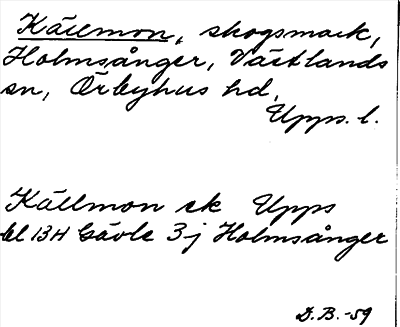 Källmon, skogsmark,
Holmsånger, Västlands
sn, Örbyhus hd,
Upps. l.
Källmon ek Upps
bl 13H Gävle 3j Holmsånger
D.B.-59